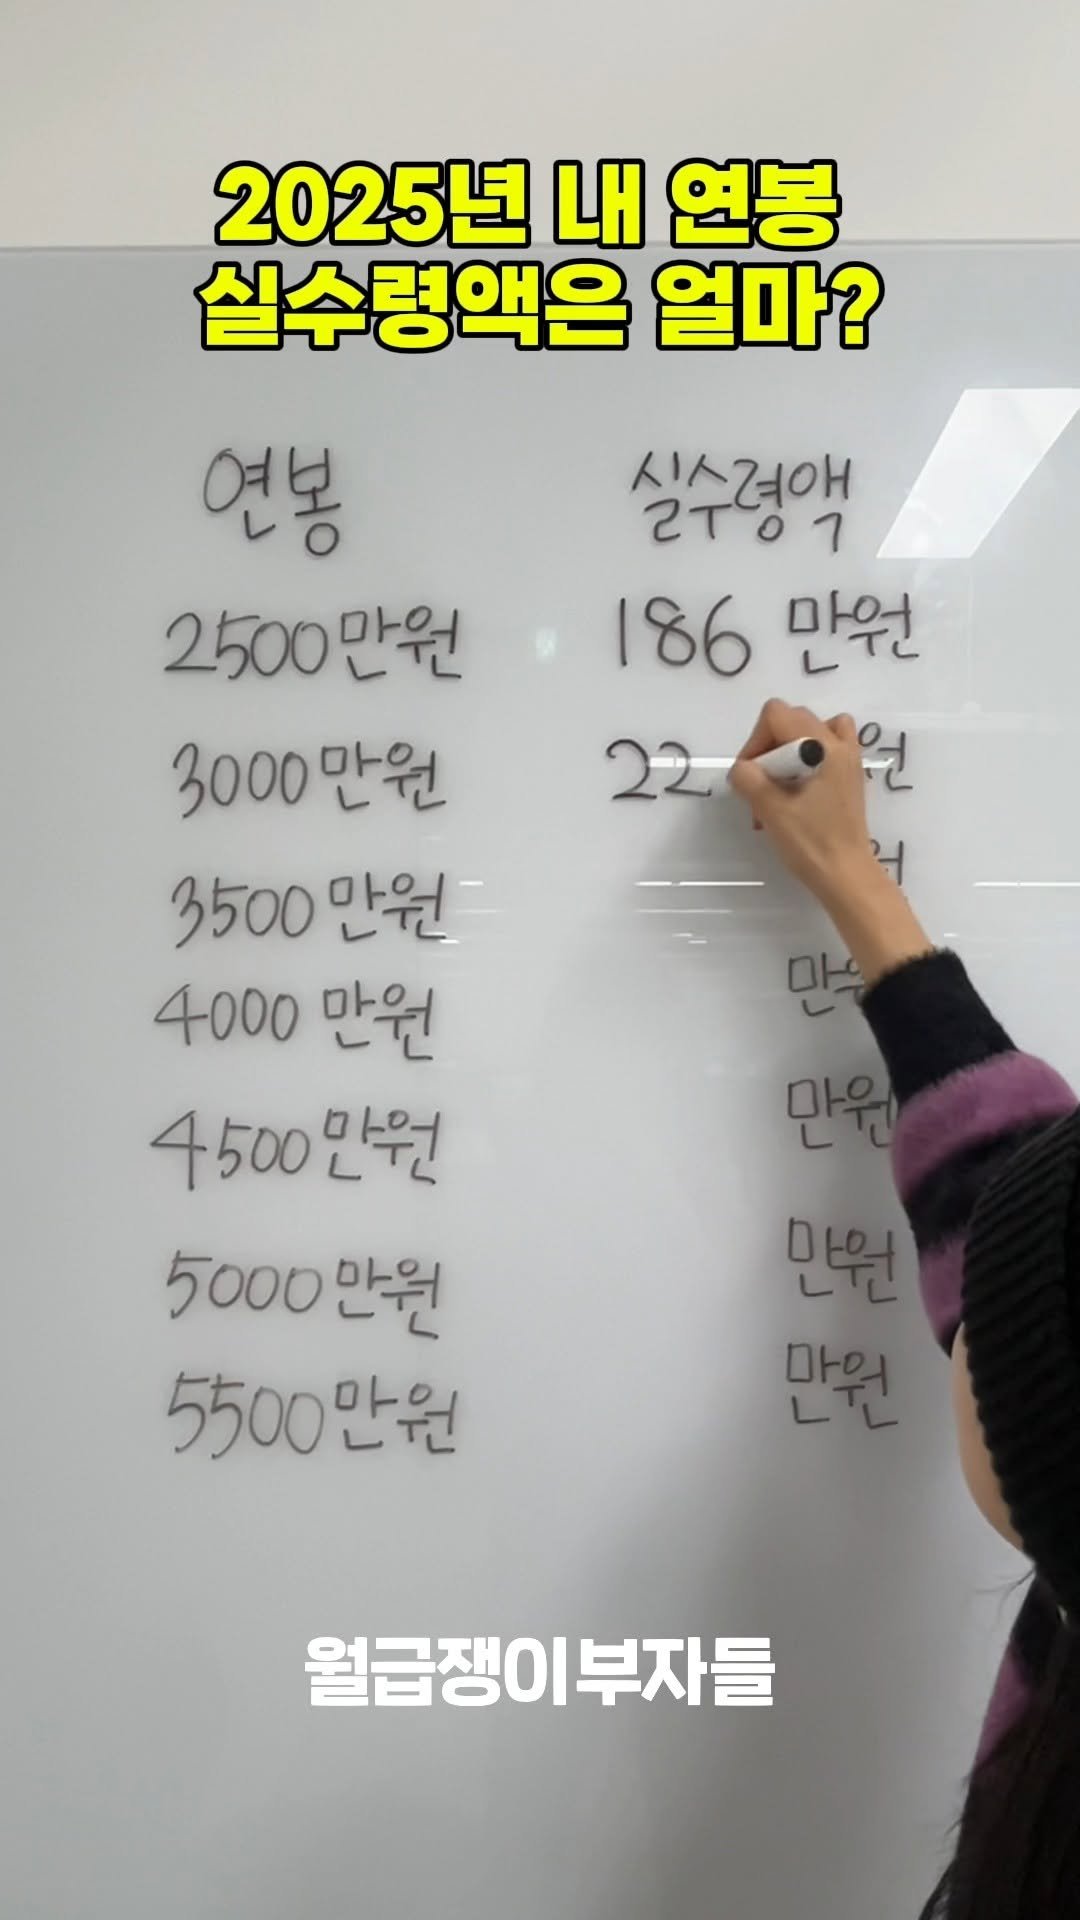 2025년 내 연봉
실수령액은 얼마?
연봉 실수령액
2500만원 186 만원
3000만원 22 원
3500만원
4000 만원 만원
4500만원 만원
5000만원 만원
5500만원 만원
월급쟁이부자들